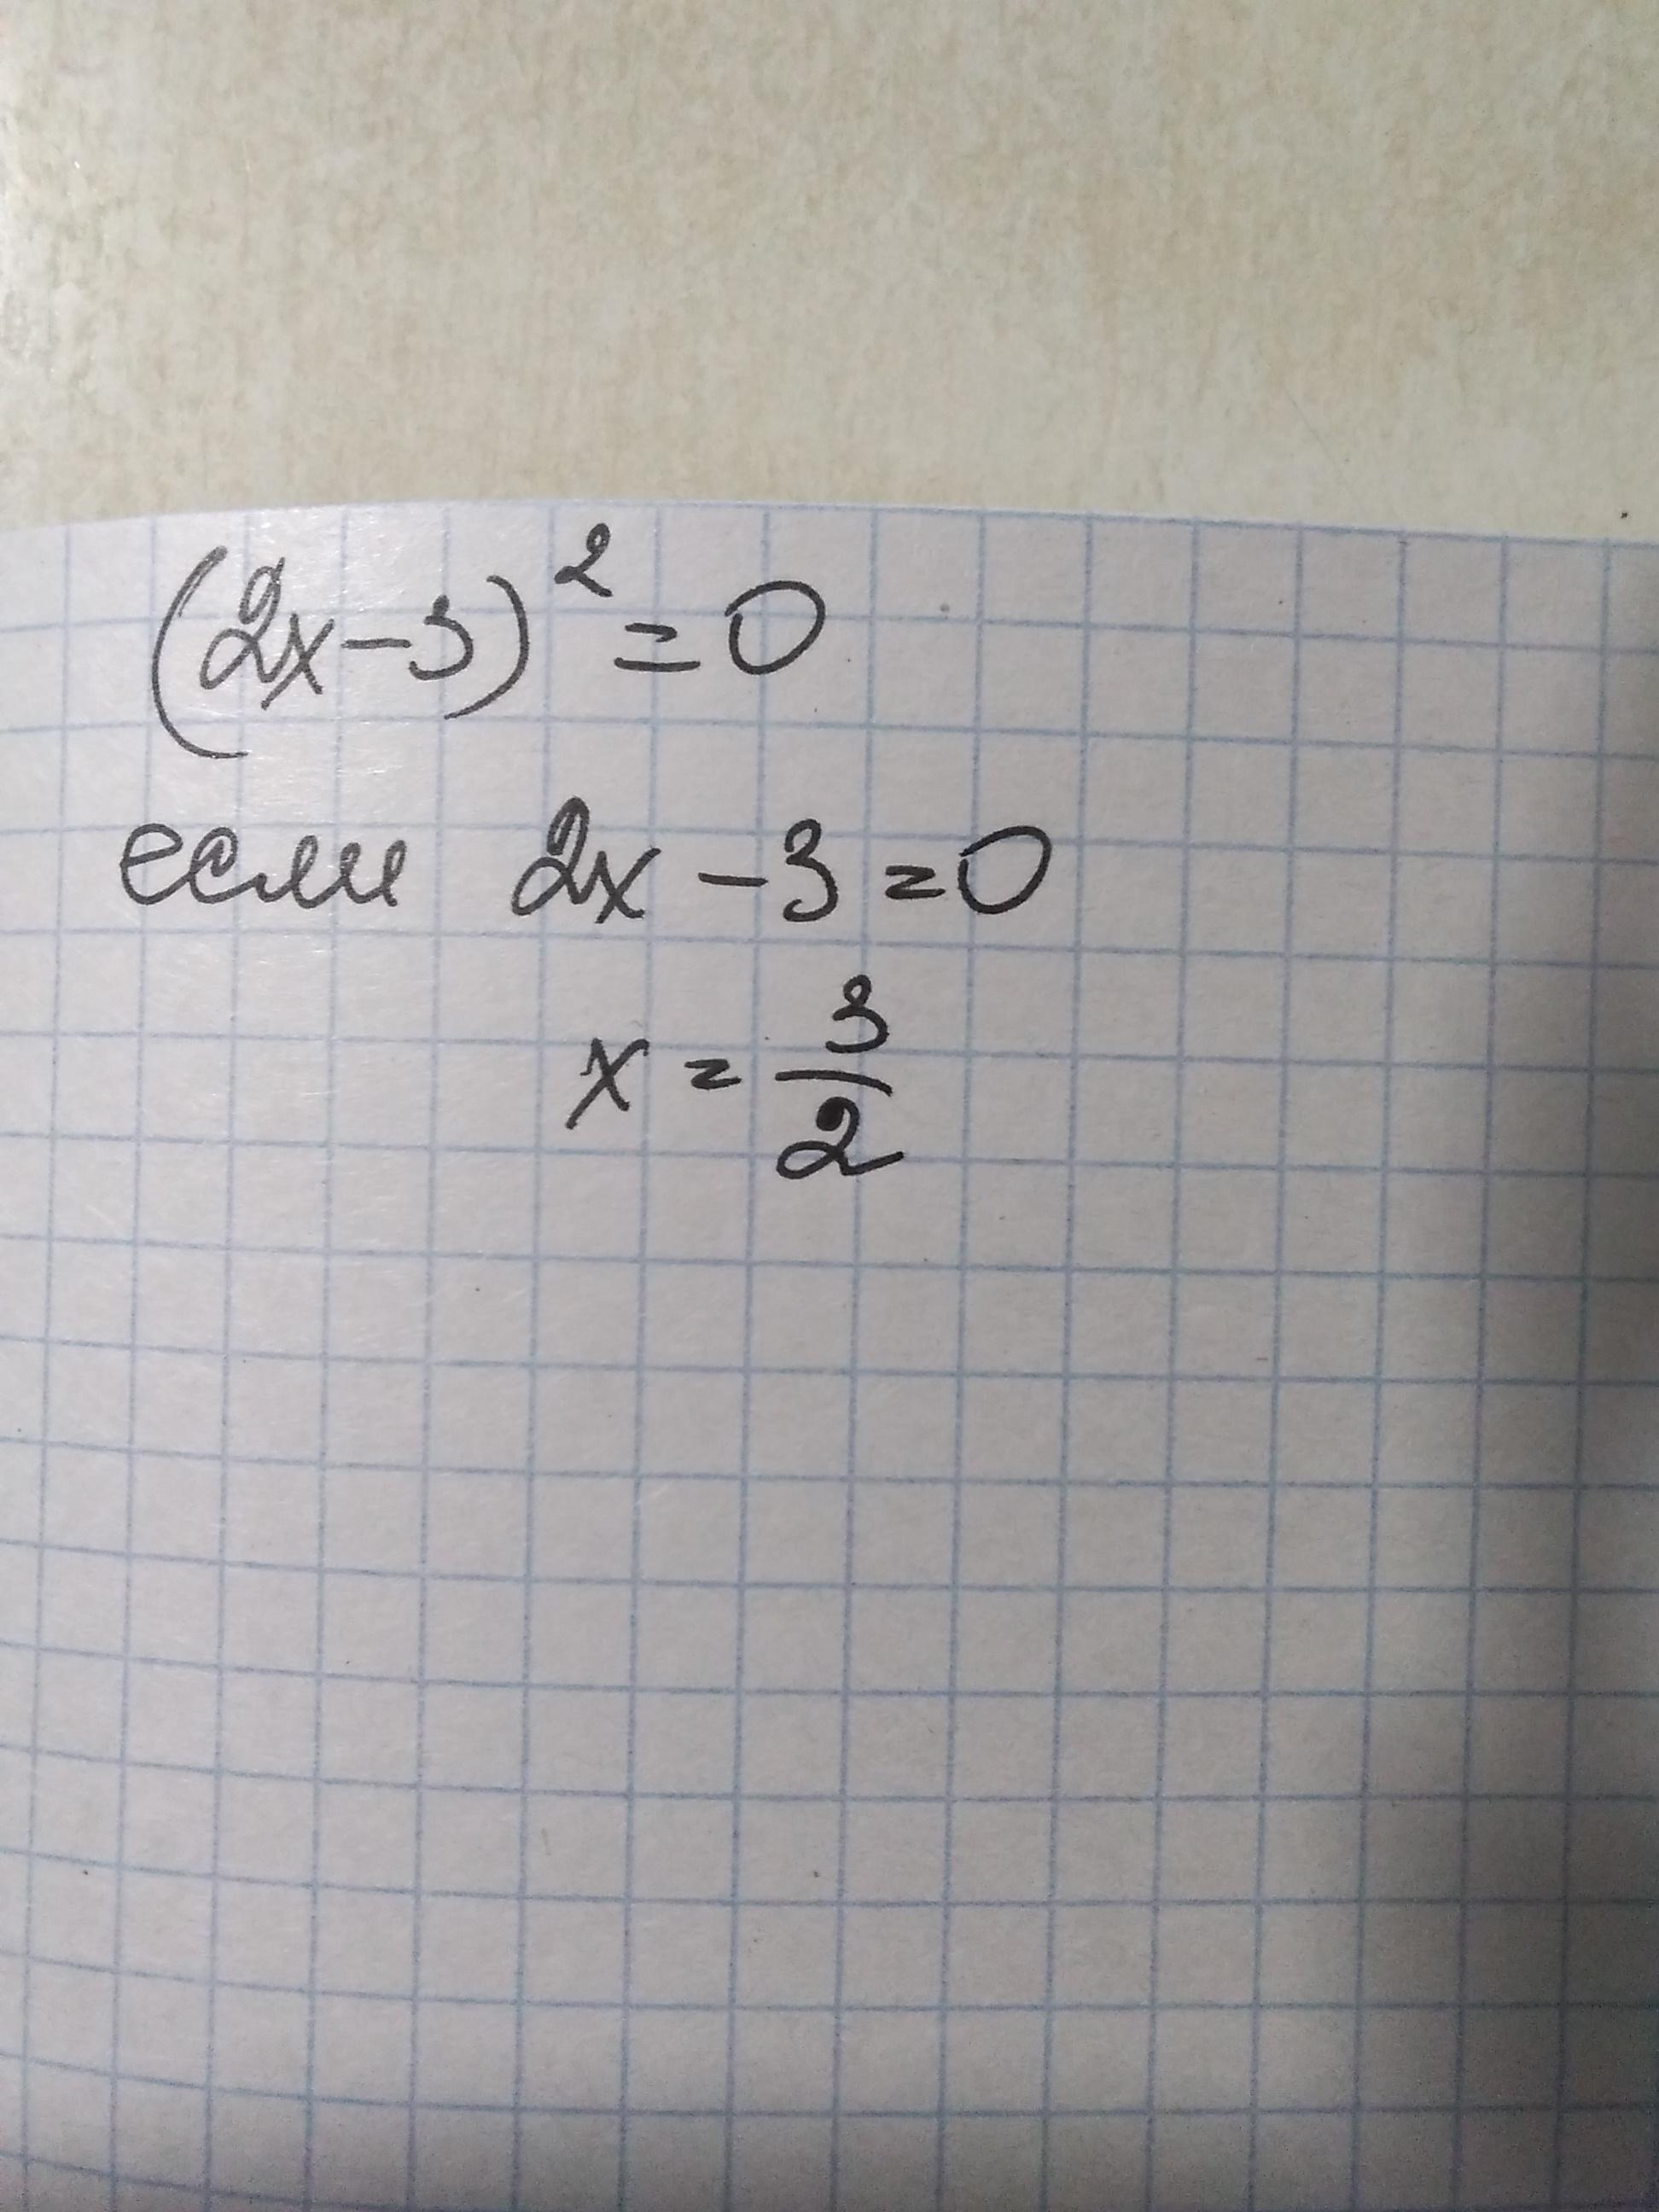 (2x-3)² = 0
если 2x - 3 = 0
x = 3/2